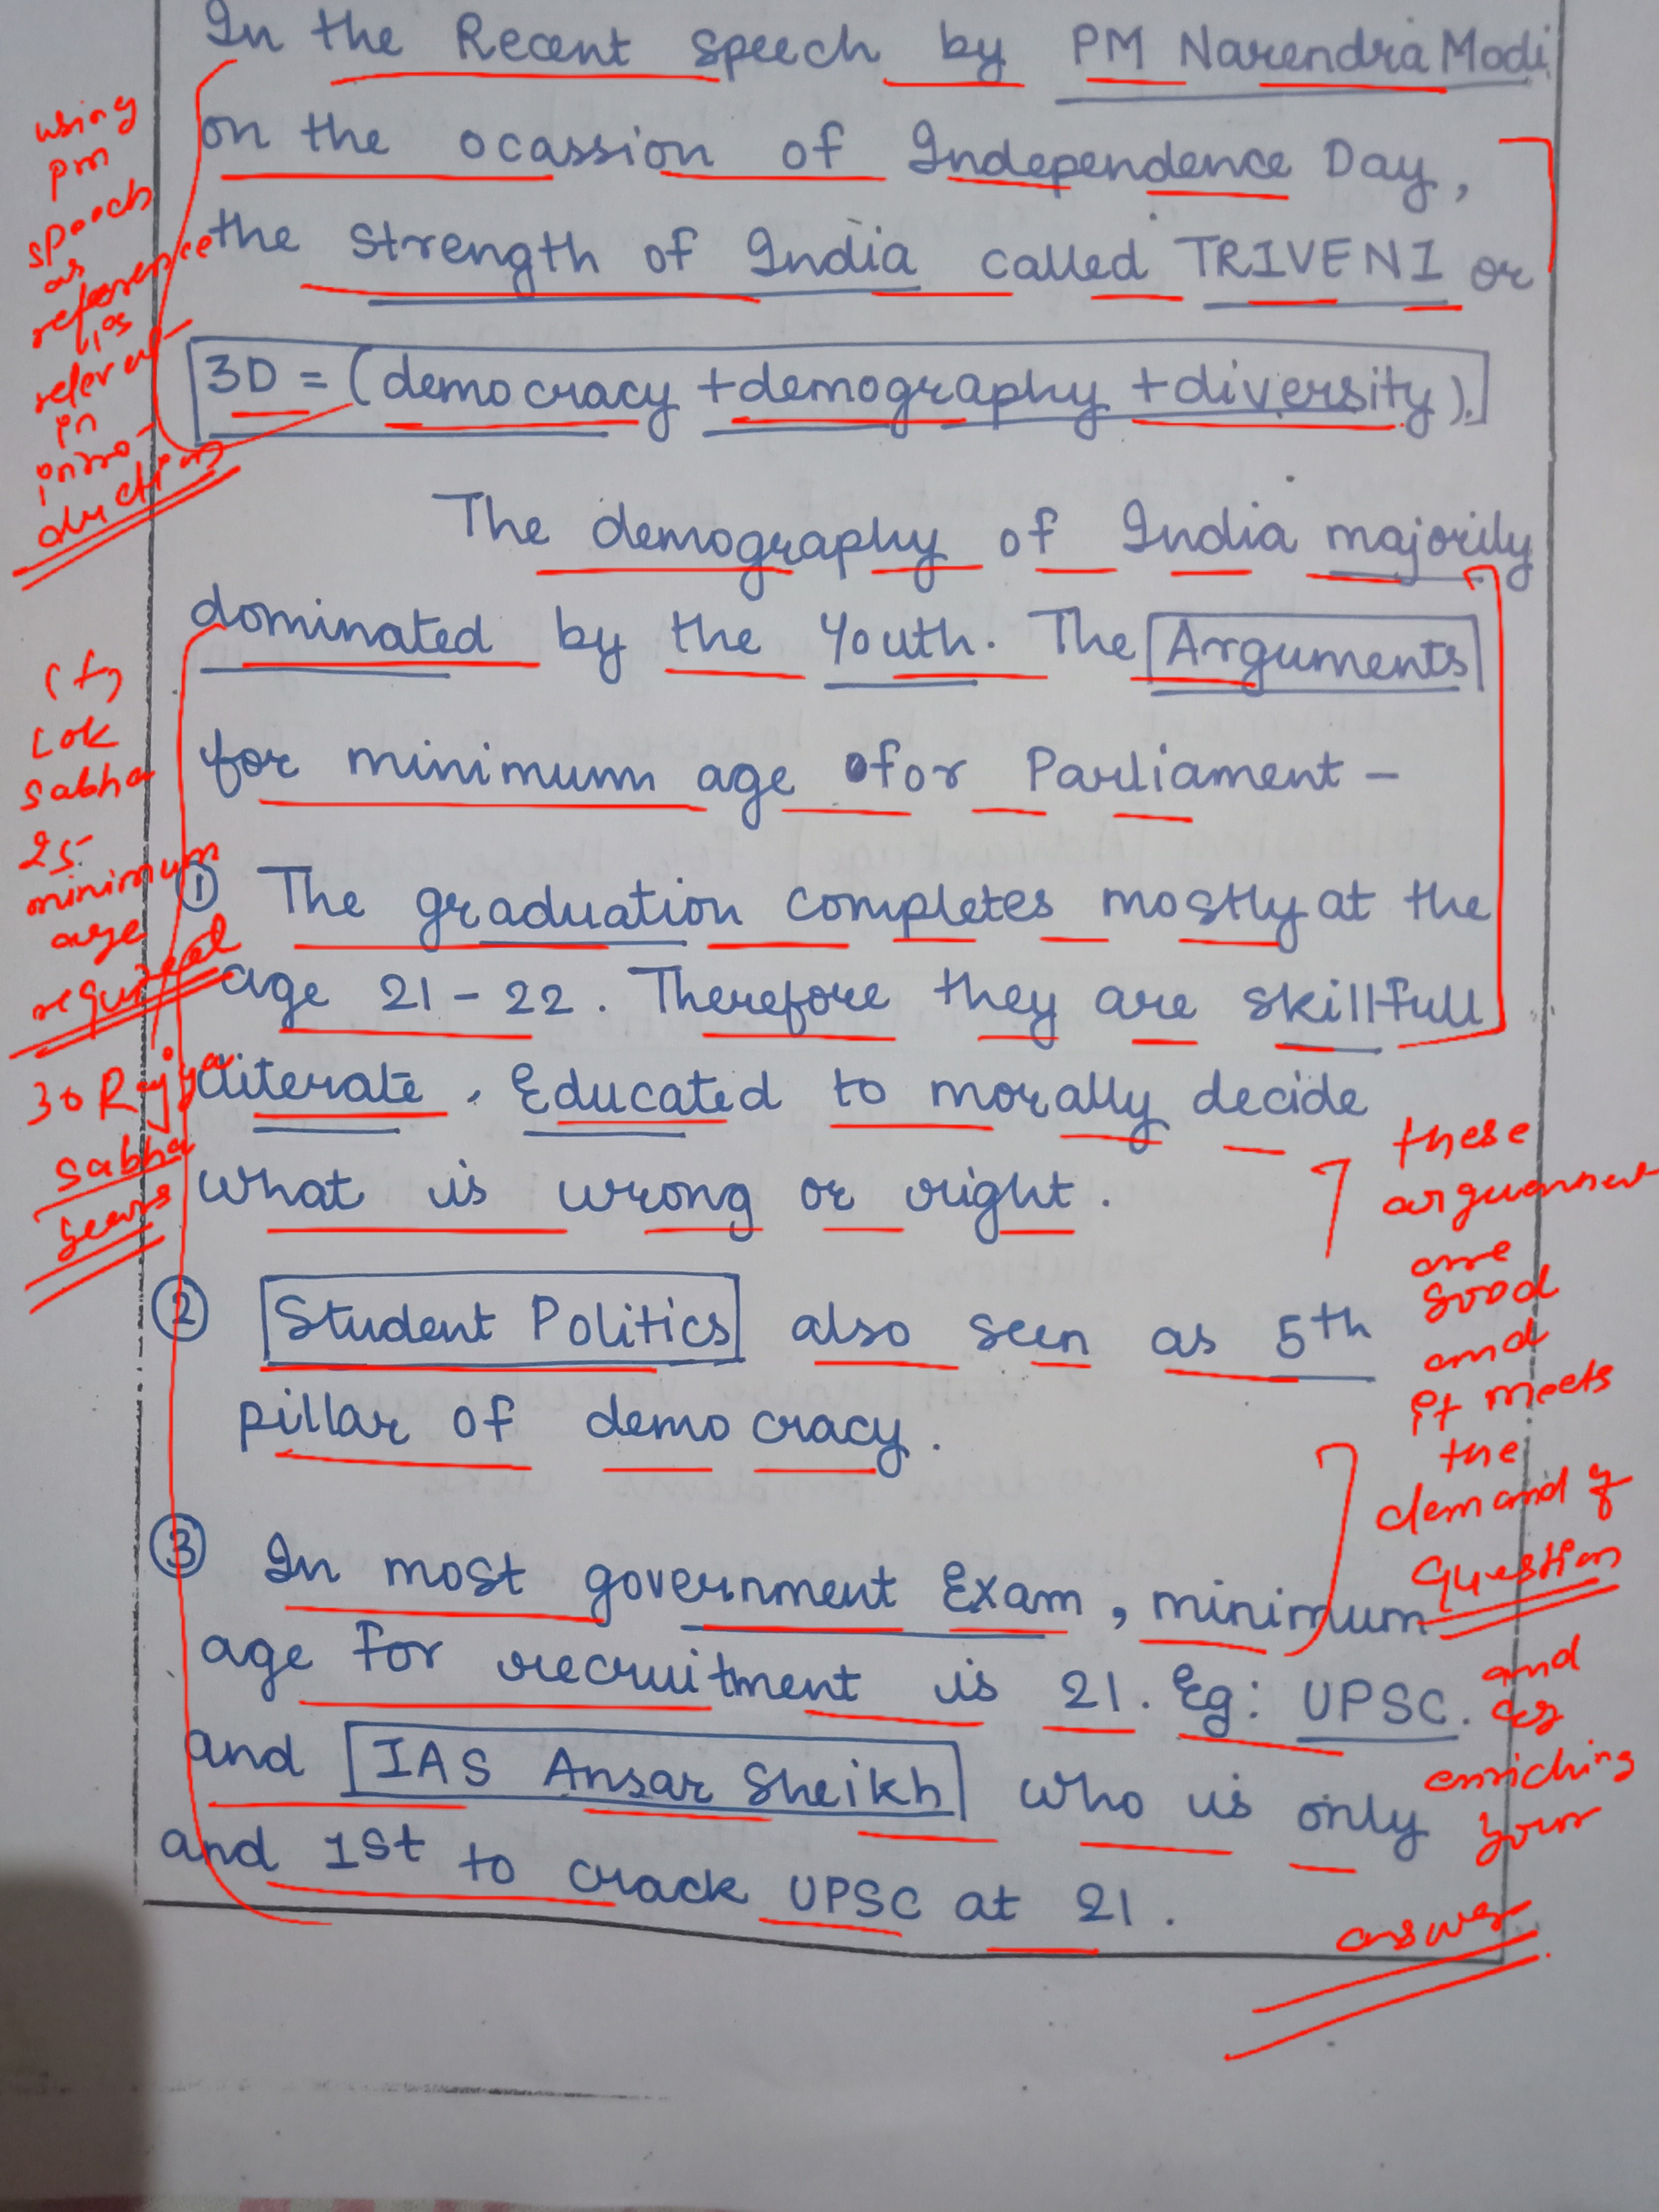 In the Recent speech by PM Narendra Modi
on the ocassion of Independence Day,
the strength of India called TRIVENI or
3D = (democracy + demography + diversity).
The demography of India majorily
dominated by the Youth. The Arguments
for minimum age for Parliament -
① The graduation completes mostly at the
age 21-22. Therefore they are skillfull
literate, Educated to morally decide
what is wrong or right.
② Student Politics also seen as 5th
pillar of democracy.
③ In most government Exam, minimum
age for recruitment is 21. Eg: UPSC.
and IAS Ansar Sheikh who is only
and 1st to crack UPSC at 21.
using
pm
speech
as
reference
is
relevant
in
intro-
duction
Lok
Sabha
25
minimum
age
required
30 Rajya
Sabha
years
these
argument
are
good
and
it meets
the
demand of
question
and
enriching
your
answer